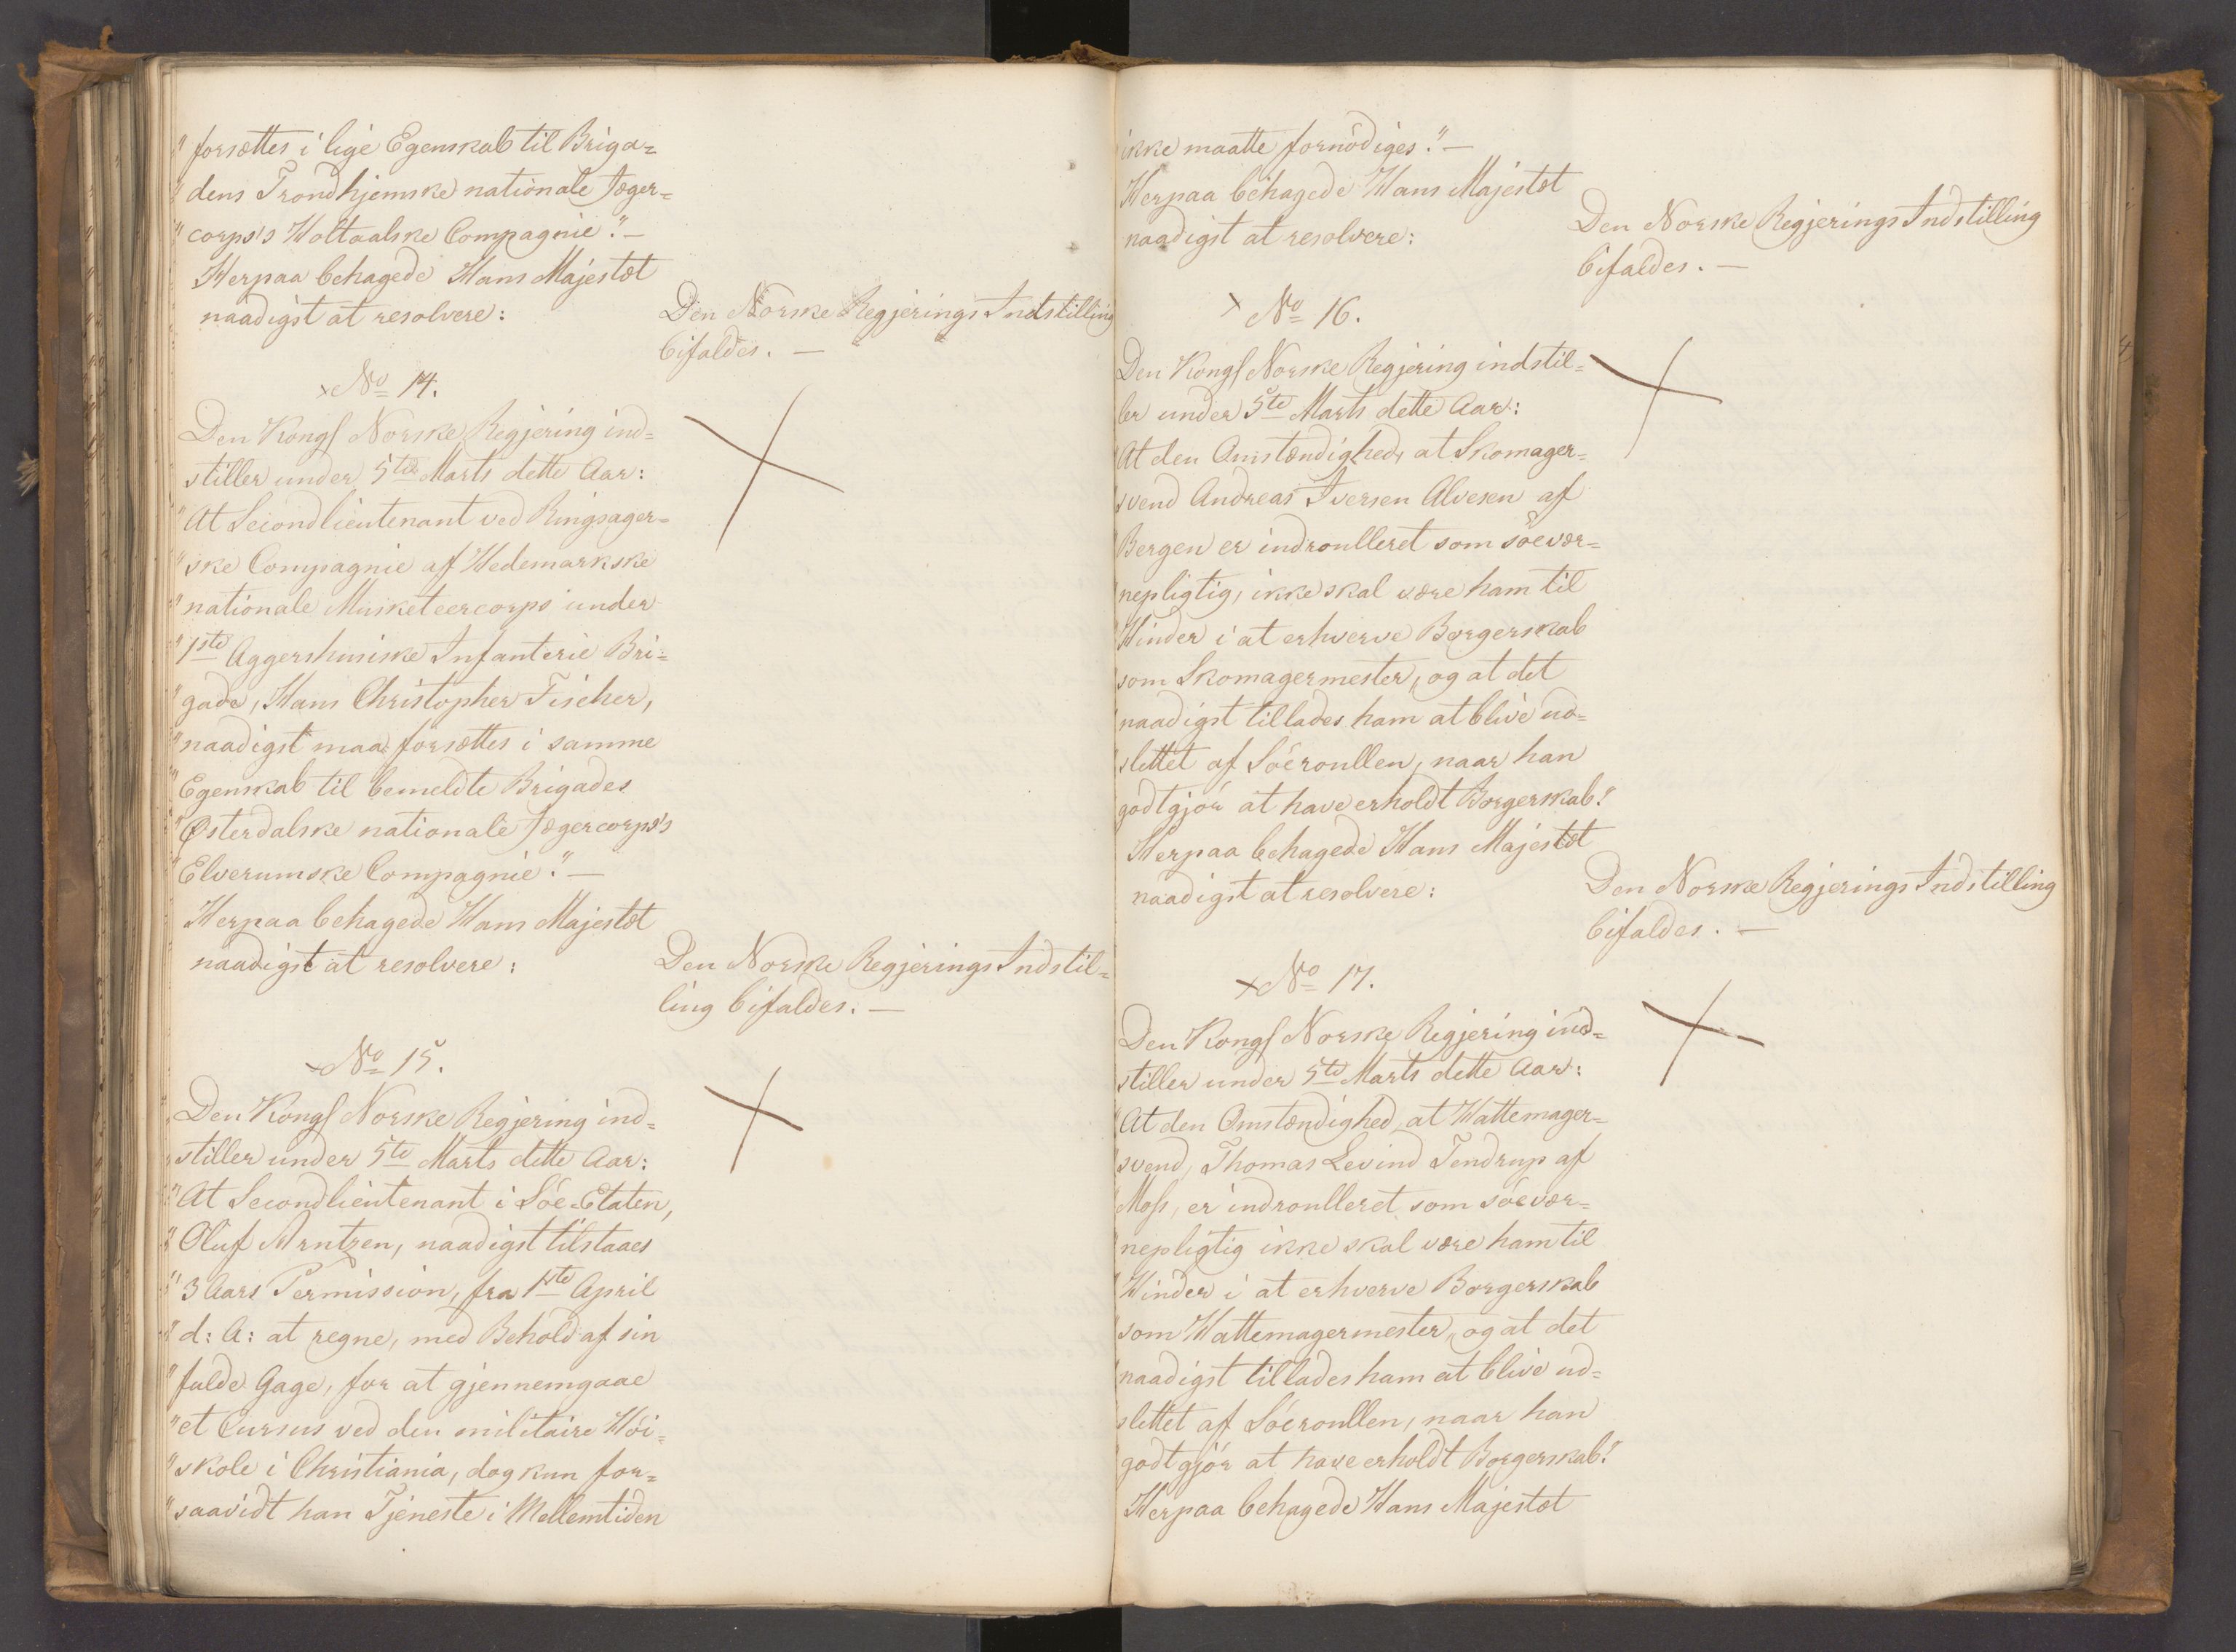 "forsættes i lige Egenskab til Briga=
"dens Trondhjemske nationale Jæger=
"corps's Holtaalske Compagnie". —
Herpaa behagede Hans Majestæt
naadigst at resolvere:
Den Norske Regjerings Indstilling
bifaldes. —
× No 14.
Den Kongl Norske Regjering ind=
stiller under 5te Marts dette Aar:
"At Secondlieutenant ved Ringsager=
"ske Compagnie af Hedemarkske
"nationale Musketeercorps under
"1ste Aggershuusiske Infanterie Bri=
"gade, Hans Christopher Fischer,
"naadigst maa forsættes i samme
"Egenskab til bemeldte Brigades
"Østerdalske nationale Jægercorps's
"Elverumske Compagnie". —
Herpaa behagede Hans Majestæt
naadigst at resolvere:
Den Norske Regjerings Indstil=
ling bifaldes. —
× No 15.
Den Kongl Norske Regjering ind=
stiller under 5te Marts dette Aar:
"At Secondlieutenant i Söe=Etaten,
"Oluf Arntzen, naadigst tilstaaes
"3 Aars Permission, fra 1ste April
"d: A: at regne, med Behold af sin
"fulde Gage, for at gjennemgaae
"et Cursus ved den militaire Höi=
"skole i Christiania, dog kun for=
"saavidt han Tjeneste i Mellemtiden
ikke maatte fornödiges". —
Herpaa behagede Hans Majestæt
naadigst at resolvere:
Den Norske Regjerings Indstilling
bifaldes. —
× No 16.
Den Kongl Norske Regjering indstil=
ler under 5te Marts dette Aar:
"At den Omstændighed, at Skomager=
"svend Andreas Iversen Alvesen af
"Bergen er indroulleret som söevær=
"nepligtig, ikke skal være ham til
"Hinder i at erhverve Borgerskab
"som Skomagermester, og at det
"naadigst tillades ham at blive ud=
"slettet af Söeroullen, naar han
"godtgjör at have erholdt Borgerskab".
Herpaa behagede Hans Majestæt
naadigst at resolvere:
Den Norske Regjerings Indstilling
bifaldes. —
× No 17.
Den Kongl Norske Regjering ind=
stiller under 5te Marts dette Aar:
"At den Omstændighed, at Hattemager=
"svend, Thomas Levind Tendrup af
"Moss, er indroulleret som söevær=
"nepligtig ikke skal være ham til
"Hinder i at erhverve Borgerskab
"som Hattemagermester, og at det
"naadigst tillades ham at blive ud=
"slettet af Söeroullen, naar han
"godtgjör at have erholdt Borgerskab".
Herpaa behagede Hans Majestæt